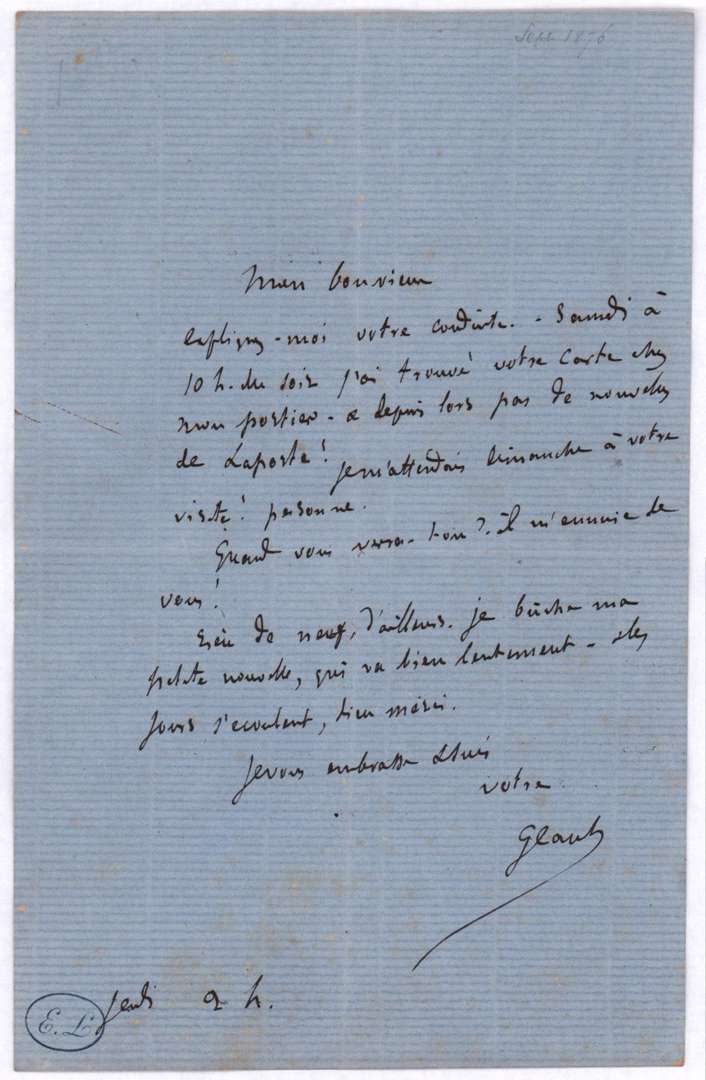 Sept 1876
Mon bon vieux
expliquez-moi votre conduite. - Samedi à
10 h. du soir j'ai trouvé votre carte chez
mon portier - & depuis lors pas de nouvelles
de Laporte! je m'attendais dimanche à votre
visite! personne.
Quand vous verra-t-on? Il m'ennuie de
vous!
Rien de neuf, d'ailleurs. je bûche ma
petite nouvelle, qui va bien lentement - & les
jours s'écoulent, dieu merci.
Je vous embrasse & suis
votre
Gve Flaubert
jeudi 2 h.
E. L.